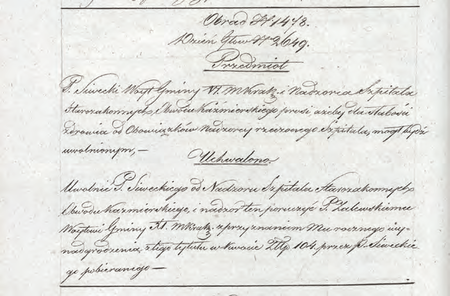 Obrad Nr 1478.
Dzień. Głow. Nr 2649.
Przedmiot
P. Siwecki Wójt Gminy VI. M. Krak. i Nadzorca Szpitala
Starozakonnych Obwodu Kaźmierskiego prosi, ażeby dla słabości
zdrowia od Obowiązków Nadzorcy rzeczonego Szpitala, mógł bydź
uwolnionym,—
Uchwalono
Uwolnić P. Siweckiego od Nadzoru Szpitala Starozakonnych
Obwodu Kazmierskiego, i nadzór ten poruczyć P. Zalewskiemu
Wójtowi Gminy XI. M. Krak. z przyznaniem Mu rocznego wy-
nadgrodzenia, z tego tytułu w kwocie Złp. 104. przez P. Siweckie-
go pobieranego—